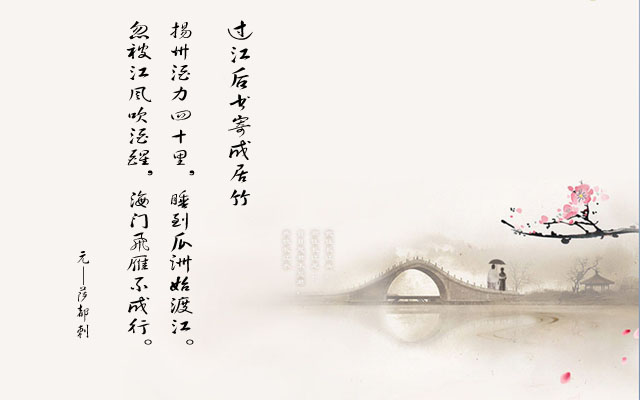 过江后书寄成居竹
扬州酒力四十里，睡到瓜洲始渡江。
忽被江风吹酒醒，海门飞雁不成行。
元——莎都剌